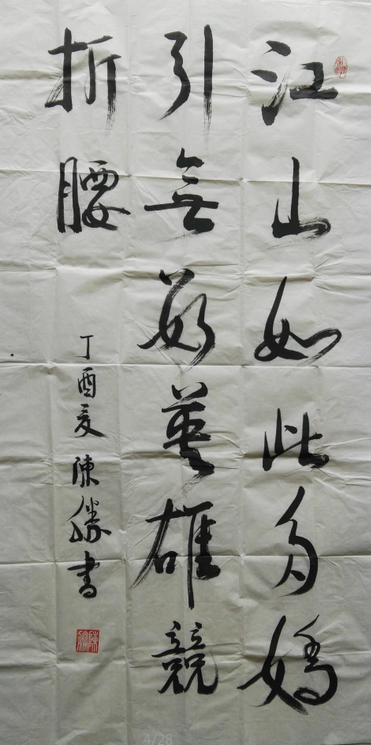 江山如此多嬌
引無數英雄競
折腰
丁酉夏 陳勝書
4/28